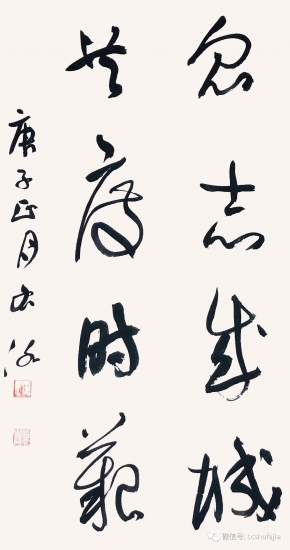 众志成城
共度时艱
庚子正月
微信号: scshufajia